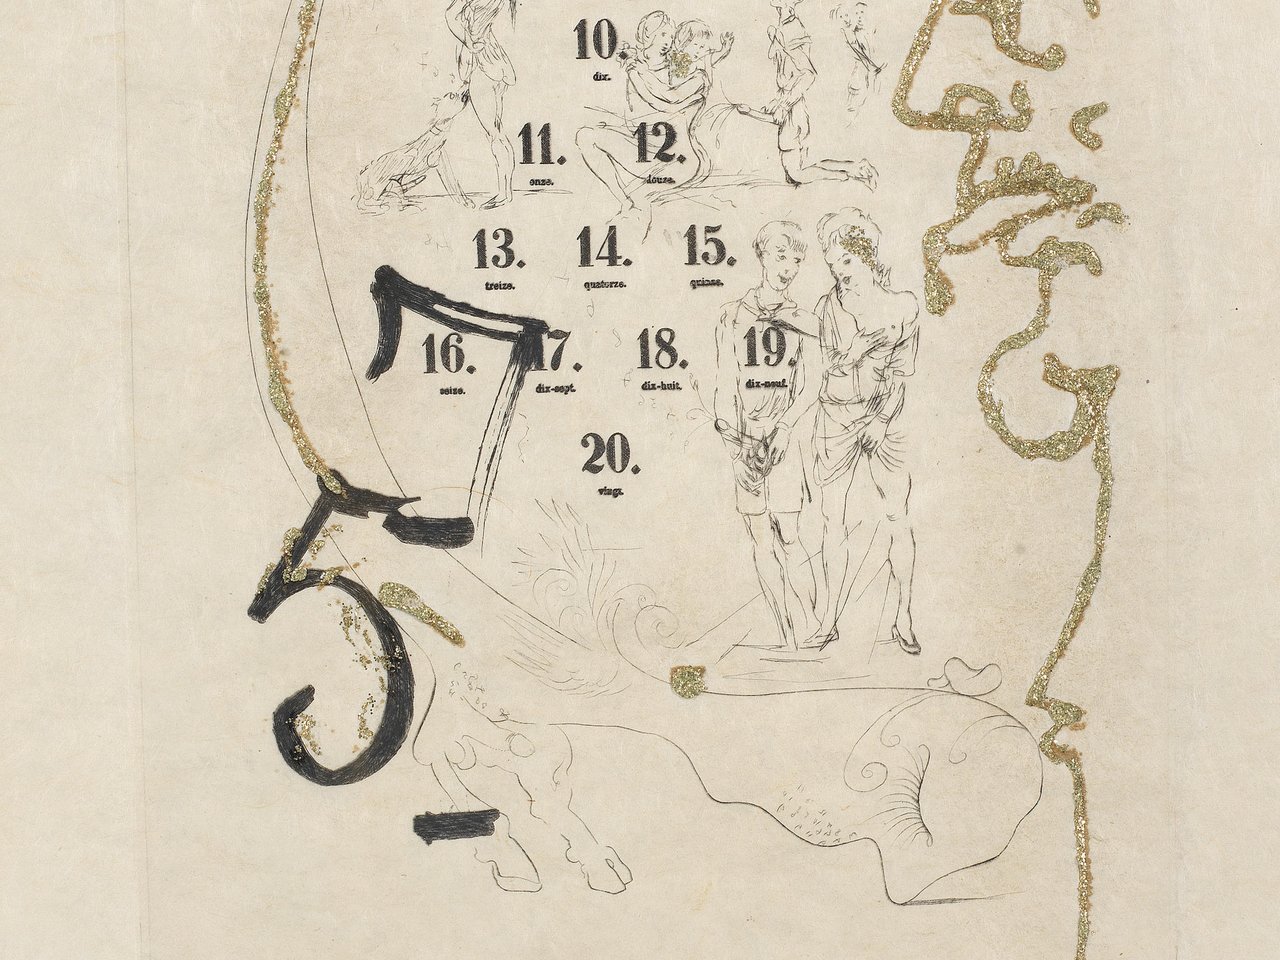 10.
dix.
11. 12.
onze. douze.
13. 14. 15.
treize. quatorze. quinze.
16. 17. 18. 19.
seize. dix-sept. dix-huit. dix-neuf.
20.
vingt.